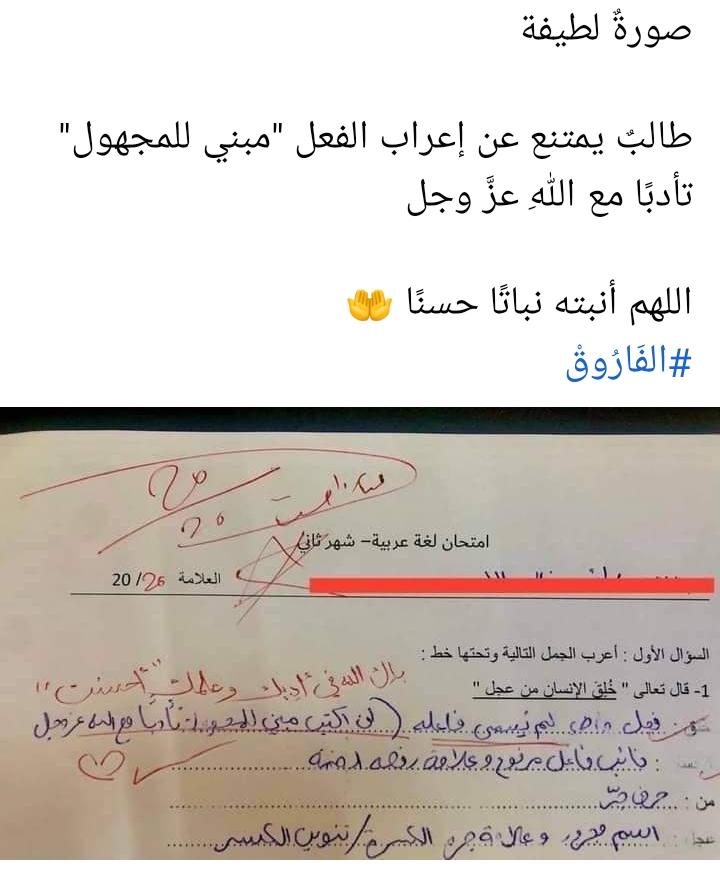 صورةٌ لطيفة
طالبٌ يمتنع عن إعراب الفعل "مبني للمجهول"
تأدبًا مع اللهِ عزَّ وجل
اللهم أنبته نباتًا حسنًا 🤲
#الفَارُوقْ
امتحان لغة عربية – شهر ثاني
العلامة 20/26
السؤال الأول : أعرب الجمل التالية وتحتها خط :
بارك الله في أدبك وعلمك "أحسنت"
1- قال تعالى " خُلِقَ الإنسان من عجل "
فعل ماض لم يسمى فاعله (لن اكتب مبني للمجهول تأدباً مع الله عز وجل
: نائب فاعل مرفوع وعلامة رفعه الضمة
من : حرف جرّ
عجل : اسم مجرور وعلامة جره الكسرة / تنوين الكسر